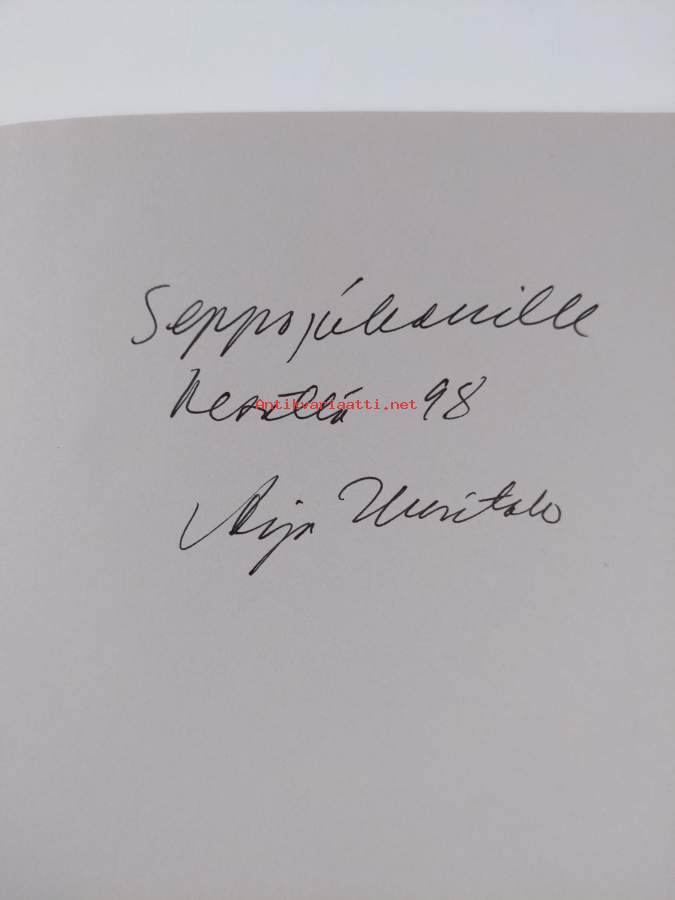 Seppojuhanille
Kesällä 98
Antikvariaatti.net
Aija